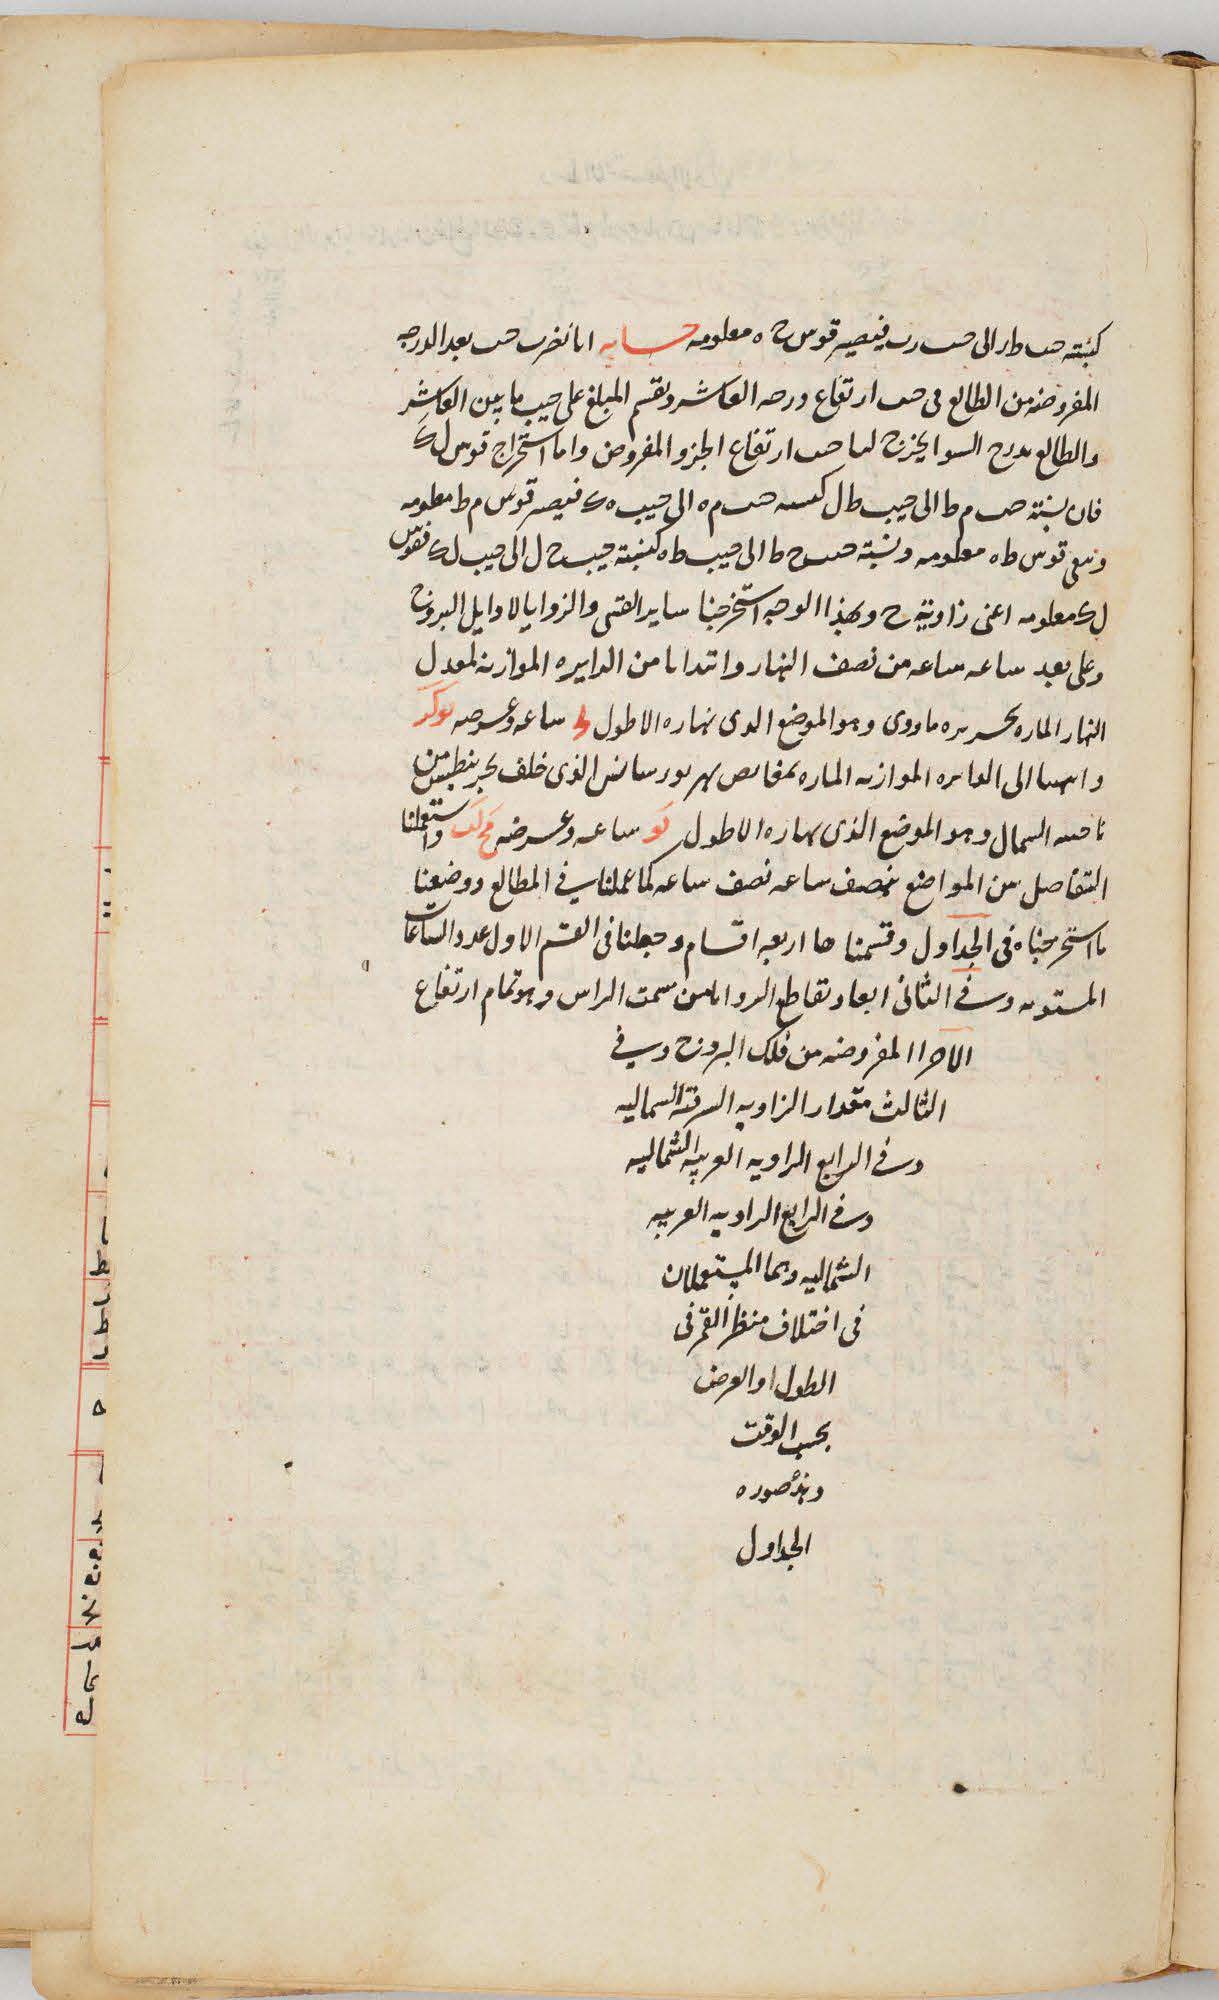 كنسبته حب طا ر الى حب رب فيصير قوس ح ه معلومه حسابه انا نضرب حب بعد الدرجه
المفروضه من الطالع فى حب ارتفاع درجه العاشر ونقسم المبلغ على جيب ما بين العاشر
والطالع بدرج السوا يخرج لنا حب ارتفاع الجزو المفروض واما استخراج قوس ل ك
فان نسبته حب م ط الى جيب ط ل كنسبه حب م ه الى جيب ه ك فيصير قوس م ط معلومه
وتبقى قوس ط ه معلومه ونسبته حب ح ط الى جيب ط ه كنسبته جيب ح ل الى جيب ل ك فقوس
ل ك معلومه اعنى زاويته ح وبهذا الوجه استخرجنا ساير القسى والزوايا لاوايل البروج
وعلى بعد ساعه ساعه من نصف النهار وابتدانا من الدايره الموازيه لمعدل
النهار الماره بجزيره ماروى وهو الموضع الذى نهاره الاطول ساعه وعرضه يو كز
وانتهينا الى الدايره الموازيه الماره بمغايص نهر بورسانس الذى خلف بحر بنطس من
ناحيه الشمال وهو الموضع الذى نهاره الاطول يو ساعه وعرضه مح لب واستعملنا
التفاضل بين المواضع بنصف ساعه نصف ساعه كما عملنا فى المطالع ووضعنا
ما استخرجناه فى الجداول وقسمناها اربعه اقسام وجعلنا فى القسم الاول عدد الساعات
المستويه وفى الثانى ابعاد تقاطع الزوايا من سمت الراس وهو تمام ارتفاع
الاجزا المفروضه من فلك البروج وفى
الثالث مقدار الزاويه الشرقيه الشماليه
وفى الرابع الزاويه الغربيه الشماليه
وفى الرابع الزاويه الغربيه
الشماليه وهما المستعملان
فى اختلاف منظر القمر فى
الطول او العرض
بحسب الوقت
وهذه صوره
الجداول